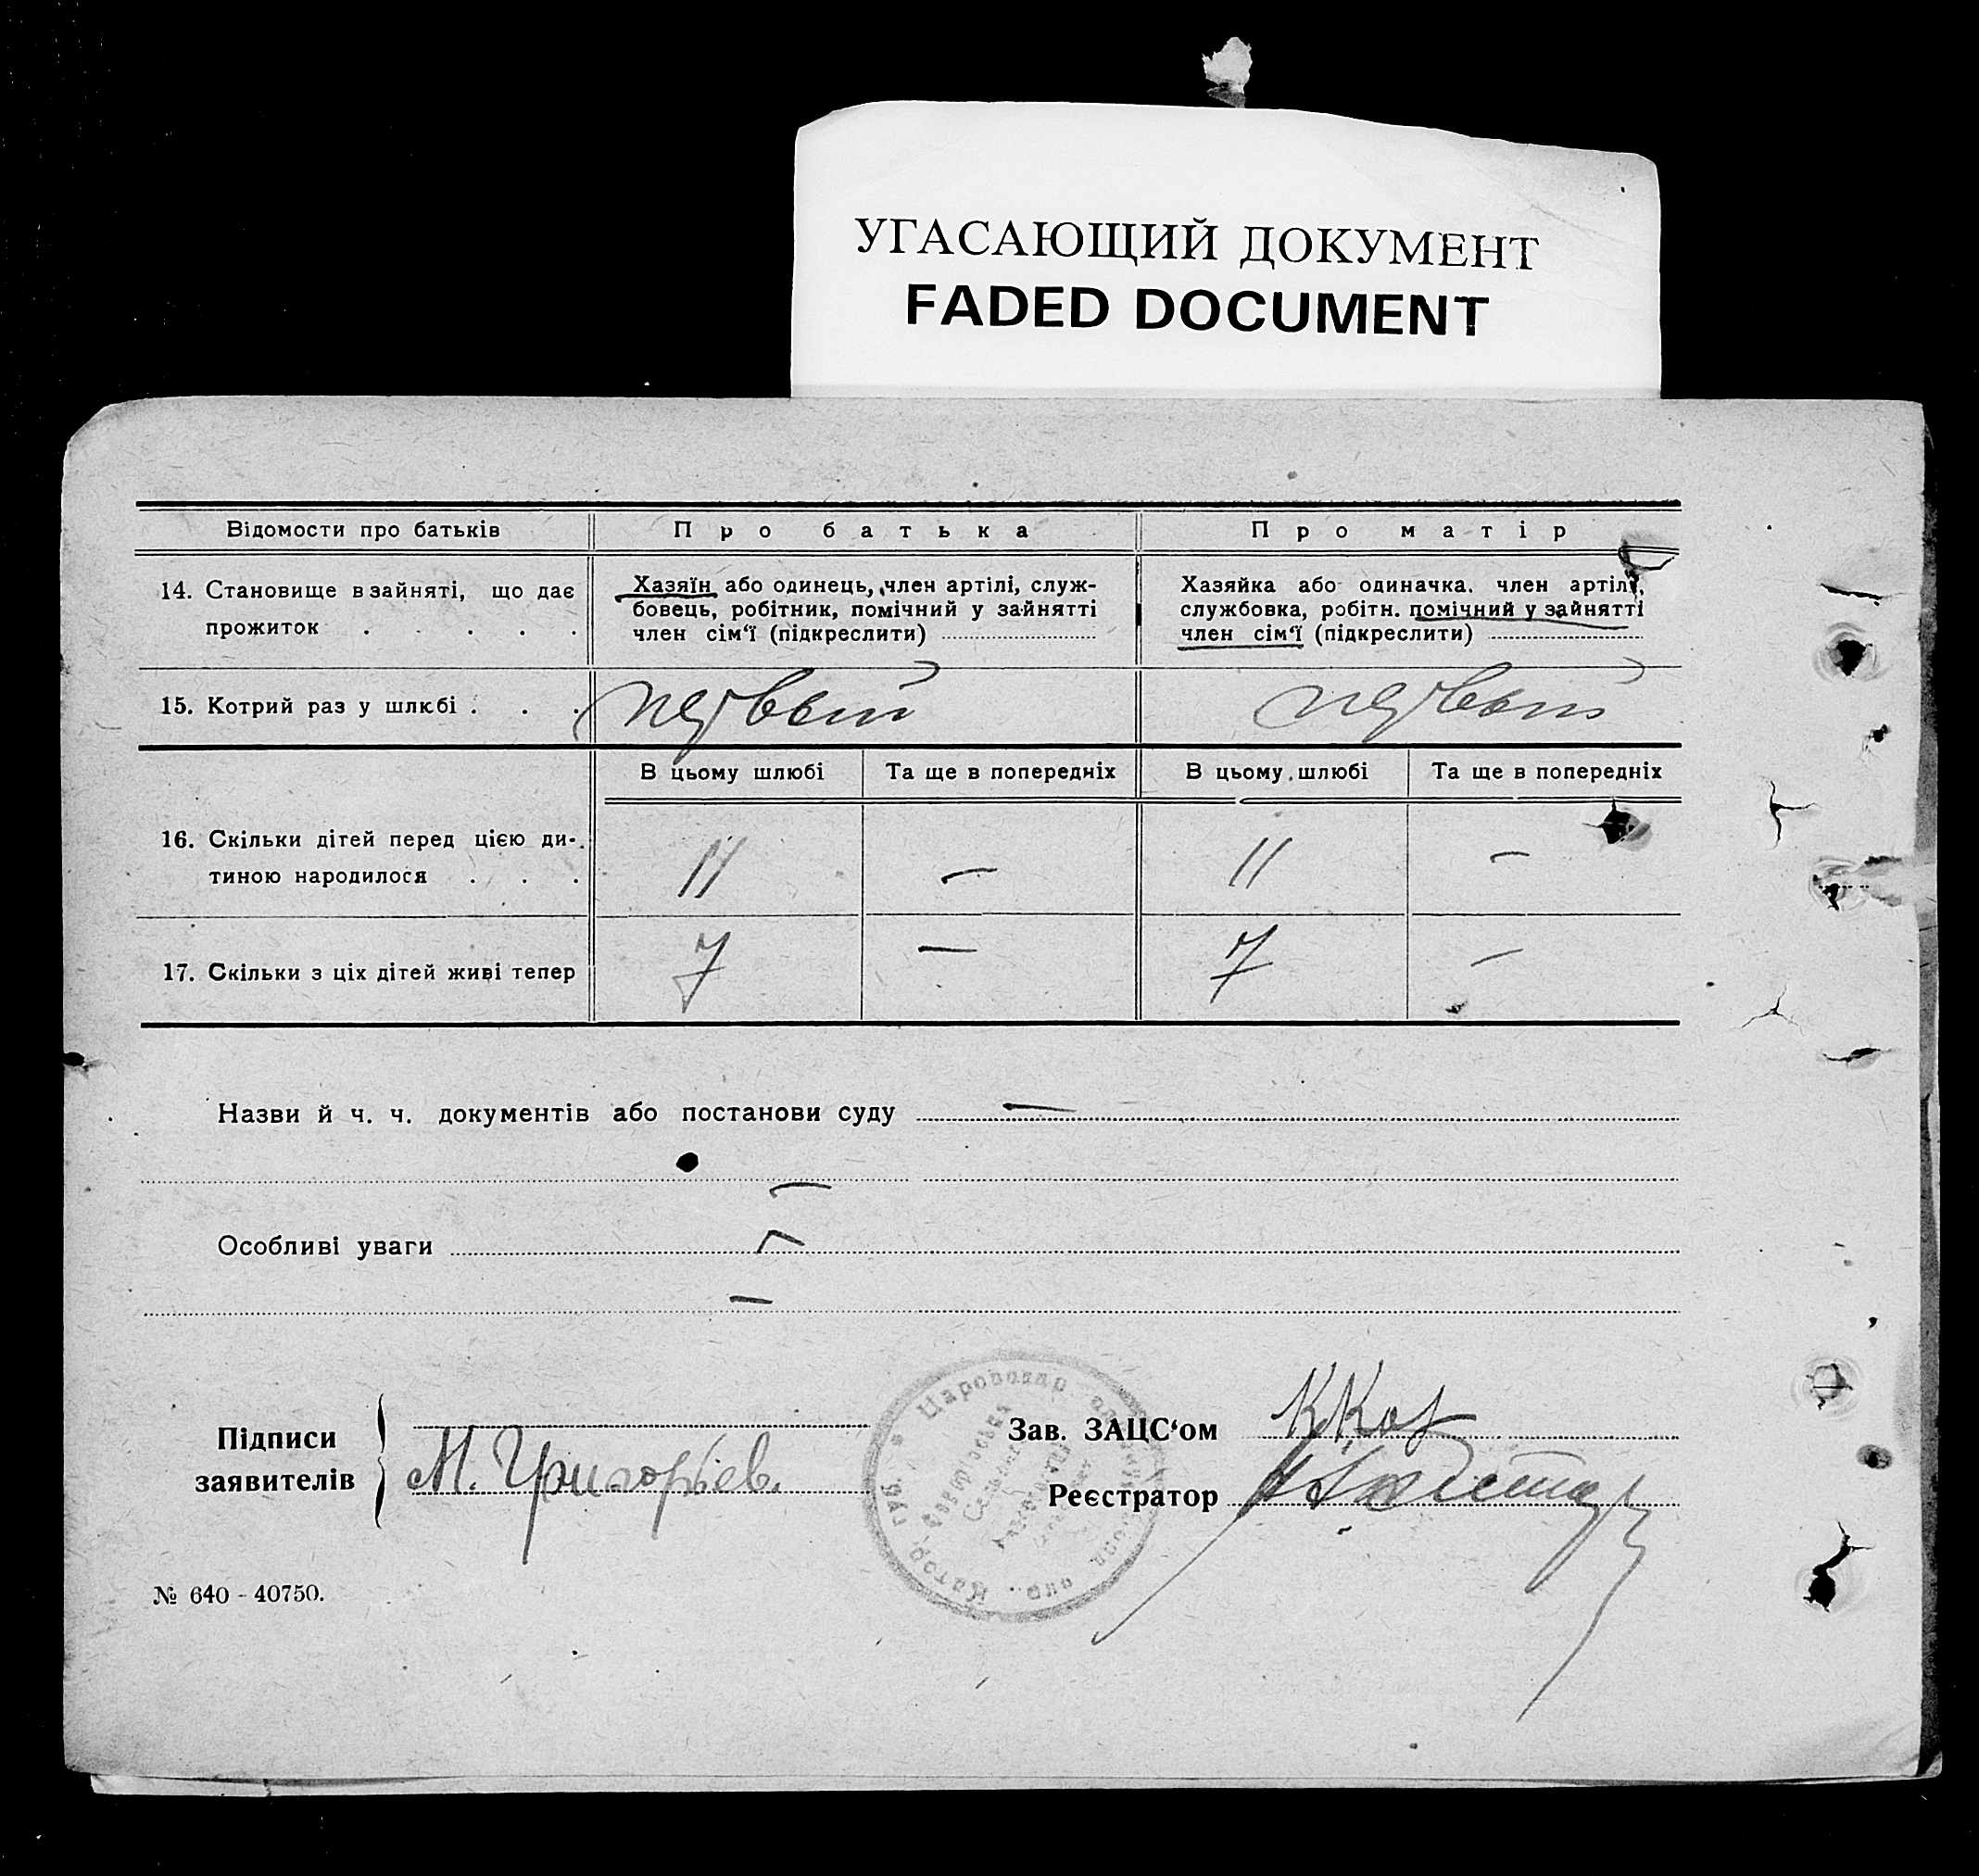 УГАСАЮЩИЙ ДОКУМЕНТ
FADED DOCUMENT
Відомости про батьків
Про батька
Про матір
14. Становище в зайняті, що дає
прожиток . . . . .
Хазяїн або одинець, член артілі, служ-
бовець, робітник, помічний у зайнятті
член сім‘ї (підкреслити)
Хазяйка або одиначка. член артілі,
службовка, робітн. помічний у зайнятті
член сім‘ї (підкреслити)
15. Котрий раз у шлюбі . . .
первый
первый
В цьому шлюбі
Та ще в попередніх
В цьому шлюбі
Та ще в попередніх
16. Скільки дітей перед цією ди-
тиною народилося . . .
11
—
11
—
17. Скільки з ціх дітей живі тепер
7
—
7
—
Назви й ч. ч. документів або постанови суду —
—
Особливі уваги —
—
Підписи
заявителів
М. Григорьев.
Зав. ЗАЦС‘ом
Реєстратор
№ 640 - 40750.